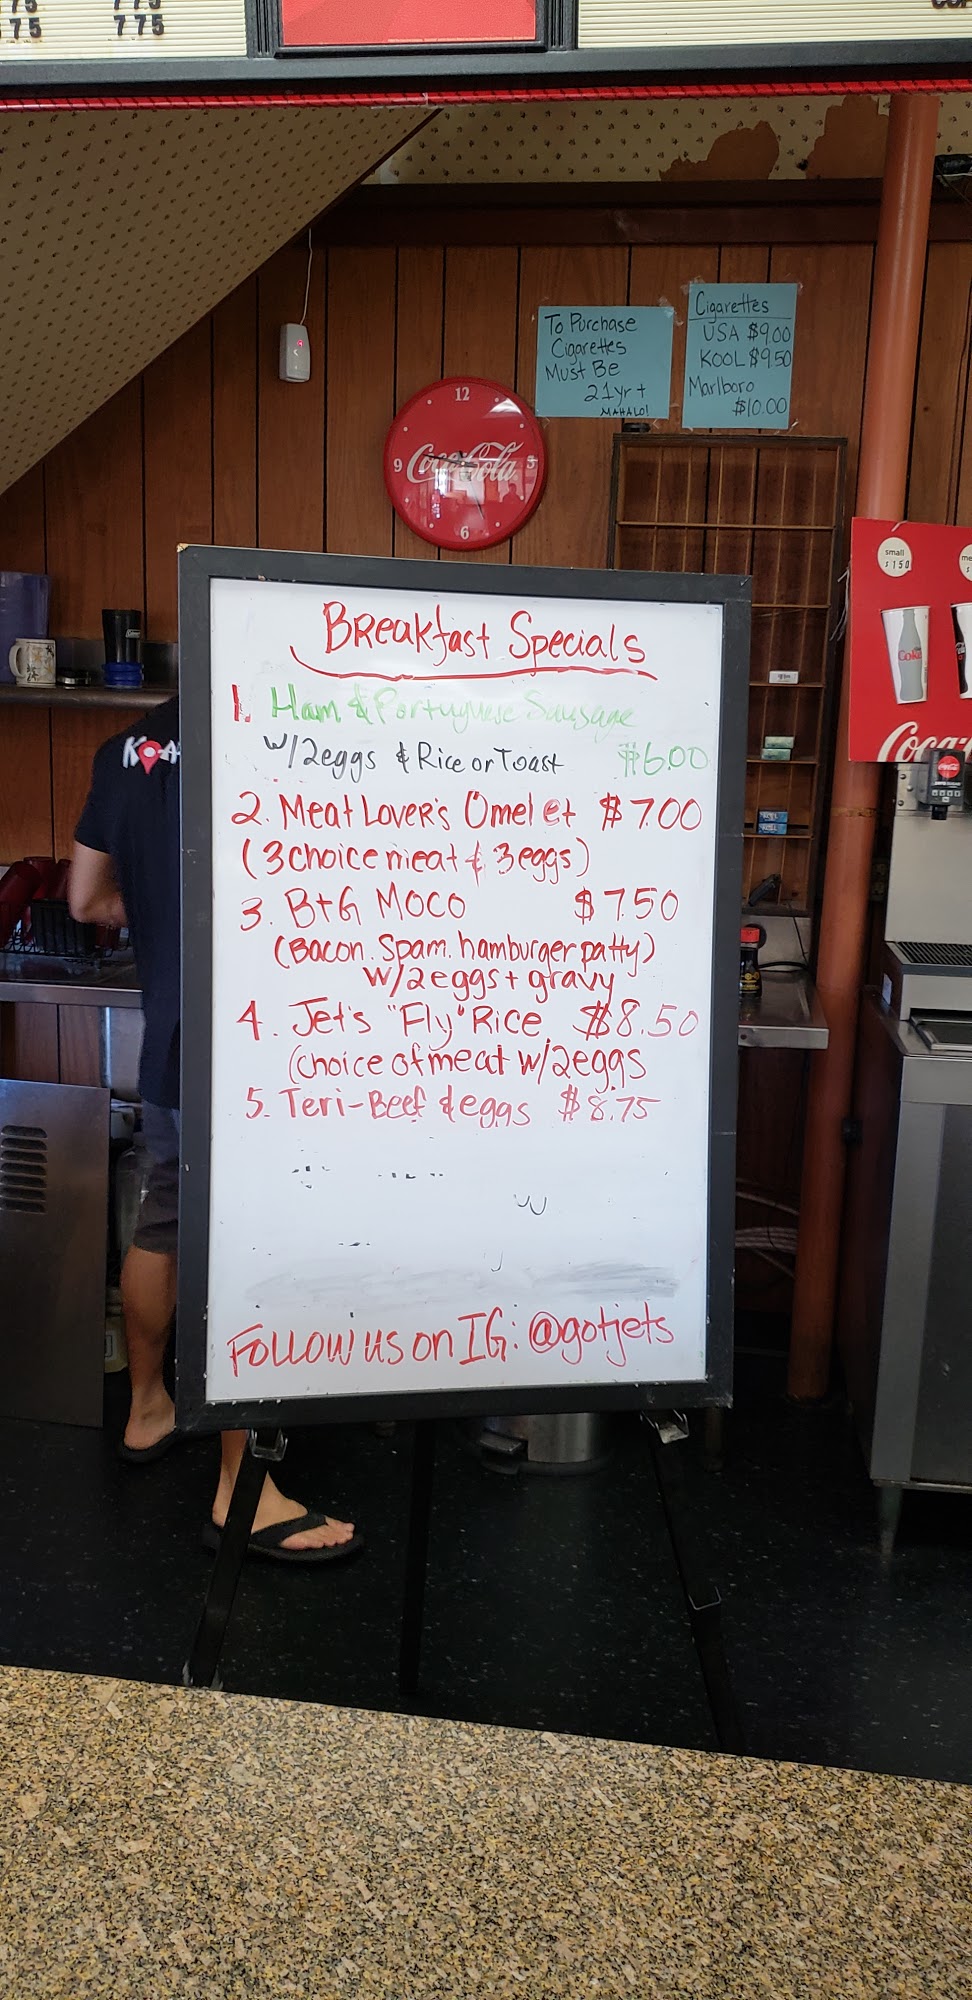 775
775
775
To Purchase
Cigarettes
Must Be
21yr +
MAHALO!
Cigarettes
USA $9.00
KOOL $9.50
Marlboro
$10.00
12
9
3
6
Coca-Cola
small
$1.50
Coke
Coca-
Breakfast Specials
1. Ham & Portuguese Sausage
w/2eggs & Rice or Toast $6.00
2. Meat Lover's Omelet $7.00
(3 choice meat & 3 eggs)
3. B+G MOCO $7.50
(Bacon. Spam. hamburger patty)
w/2eggs + gravy
4. Jet's "Fly" Rice $8.50
(choice of meat w/2eggs
5. Teri-Beef & eggs $8.75
Follow us on IG: @gotjets